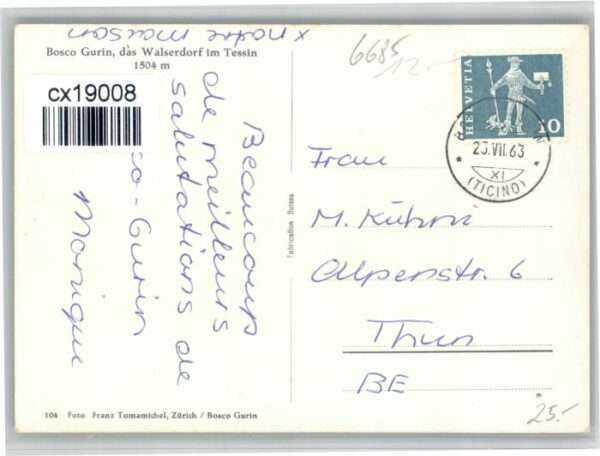 x notre maison
Bosco Gurin, das Walserdorf im Tessin
1504 m
cx19008
Beaucoup
de meilleurs
salutations de
co-Gurin
Monique
Fabrication Suisse
6685
12.-
HELVETIA
10
23.VII.63
XI
(TICINO)
Frau
Alpenstr. 6
Thun
BE
25.-
104 Foto Franz Tomamichel, Zürich / Bosco Gurin